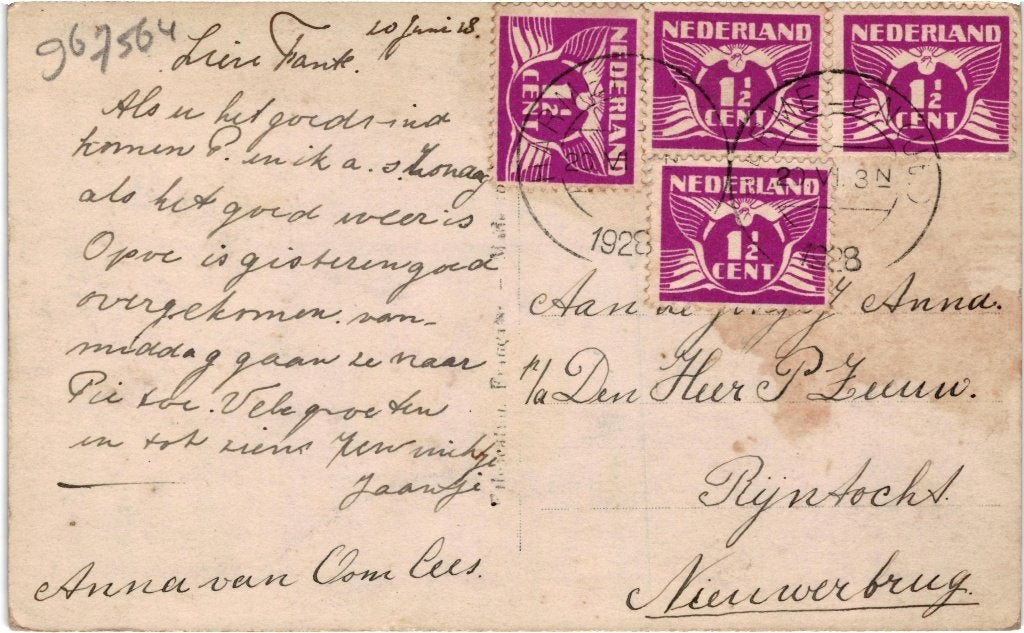 967564
20 Juni 28.
Lieve Tante.
Als u het goedvind
komen P. en ik a.s. Zondag
als het goed weer is
Opoe is gisteren goed
overgekomen. van-
middag gaan ze naar
Pie toe. Vele groeten
en tot ziens Uw nichtje
Jaantje
Anna van Oom Cees.
NEDERLAND
1½
CENT
NEDERLAND
1½
CENT
NEDERLAND
1½
CENT
NEDERLAND
1½
CENT
20 VI
1928
20 VI. 3 N
1928
Aan Anna.
p/a Den Heer P Zeeuw.
Rijntocht.
Nieuwerbrug.